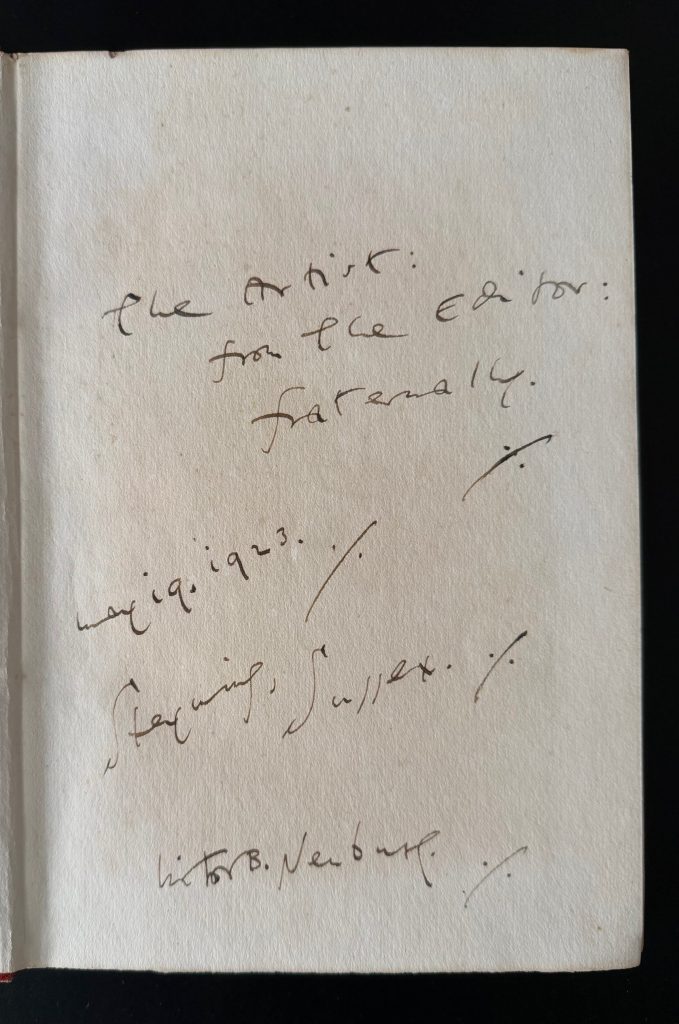 The Artist:
from the Editor:
fraternally.
May 19. 1923.
Steyning, Sussex.
Victor B. Neuburg.